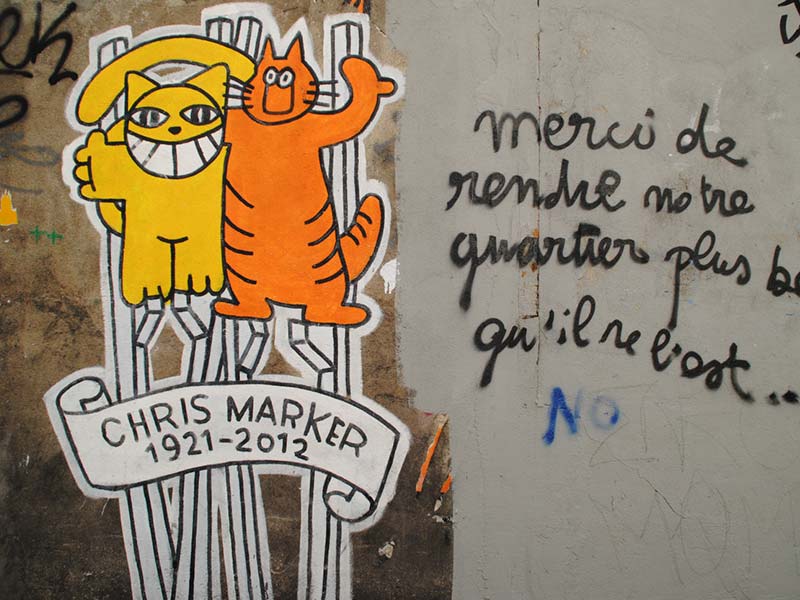 CHRIS MARKER
1921-2012
merci de
rendre notre
quartier plus be
qu'il ne l'est...
NO